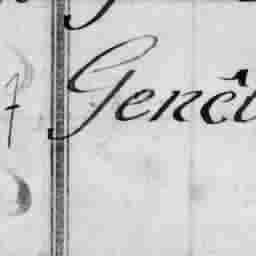 7 Genêt